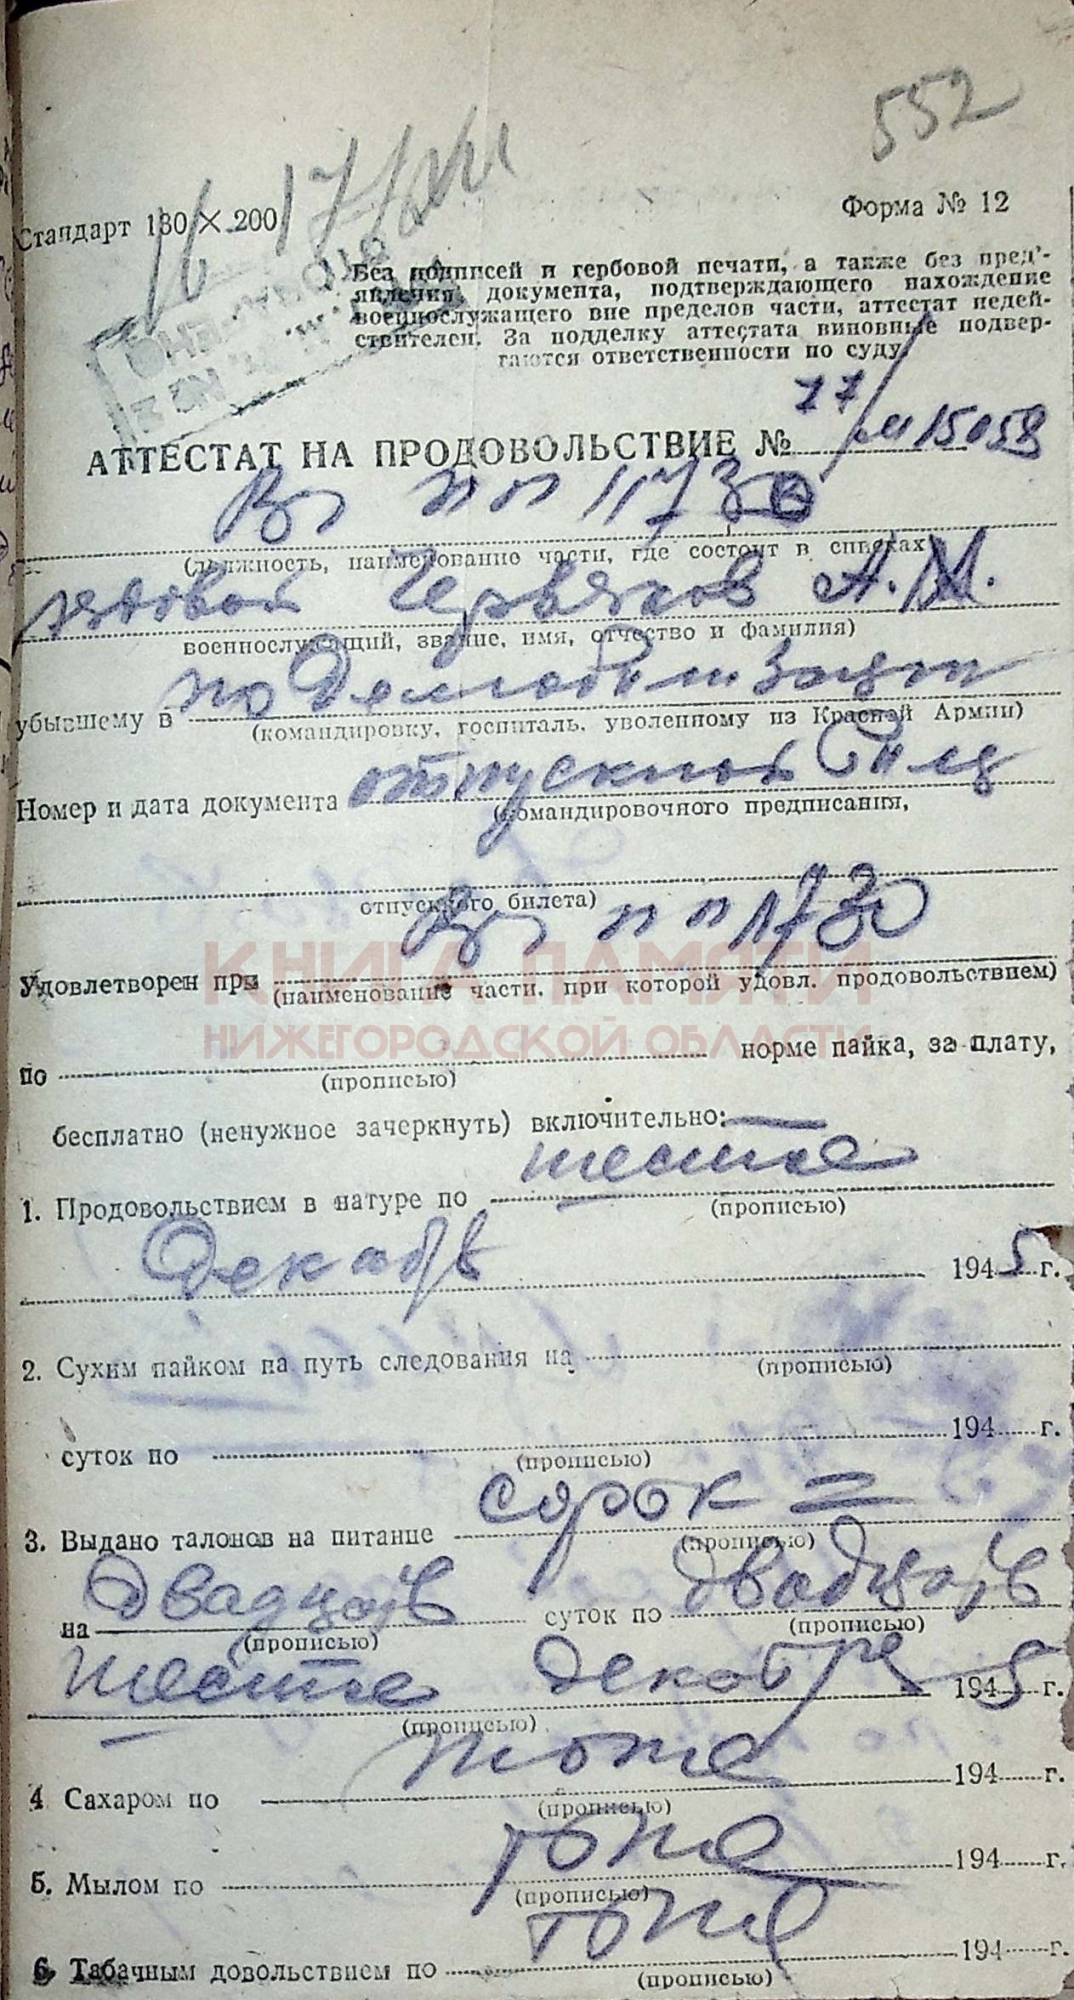 552
16 17/XII
Стандарт 130×200
Форма № 12
Без подписей и гербовой печати, а также без пред'-
явления документа, подтверждающего нахождение
военнослужащего вне пределов части, аттестат недей-
ствителен. За подделку аттестата виновные подвер-
гаются ответственности по суду.
АТТЕСТАТ НА ПРОДОВОЛЬСТВИЕ № 15058
Вг пп 11730
(должность, наименование части, где состоит в списках)
рядовой Червяков А. М.
военнослужащий, звание, имя, отчество и фамилия)
убывшему в по Демобилизации
(командировку, госпиталь, уволенному из Красной Армии)
Номер и дата документа отпускной бил
(командировочного предписания,
отпускного билета)
Удовлетворен при пп 11730
(наименование части, при которой удовл. продовольствием)
КНИГА ПАМЯТИ
НИЖЕГОРОДСКОЙ ОБЛАСТИ
по норме пайка, за плату,
(прописью)
бесплатно (ненужное зачеркнуть) включительно:
1. Продовольствием в натуре по шестое
(прописью)
Декабр 1945 г.
2. Сухим пайком на путь следования на
(прописью)
суток по 194 г.
(прописью)
3. Выдано талонов на питание сорок =
(прописью)
на двадцать суток по двадцать
(прописью) (прописью)
шестое декабре 1945 г.
(прописью)
4 Сахаром по тоже 194 г.
(прописью)
5. Мылом по тоже 194 г.
(прописью)
6. Табачным довольствием по тоже 194 г.
(прописью)